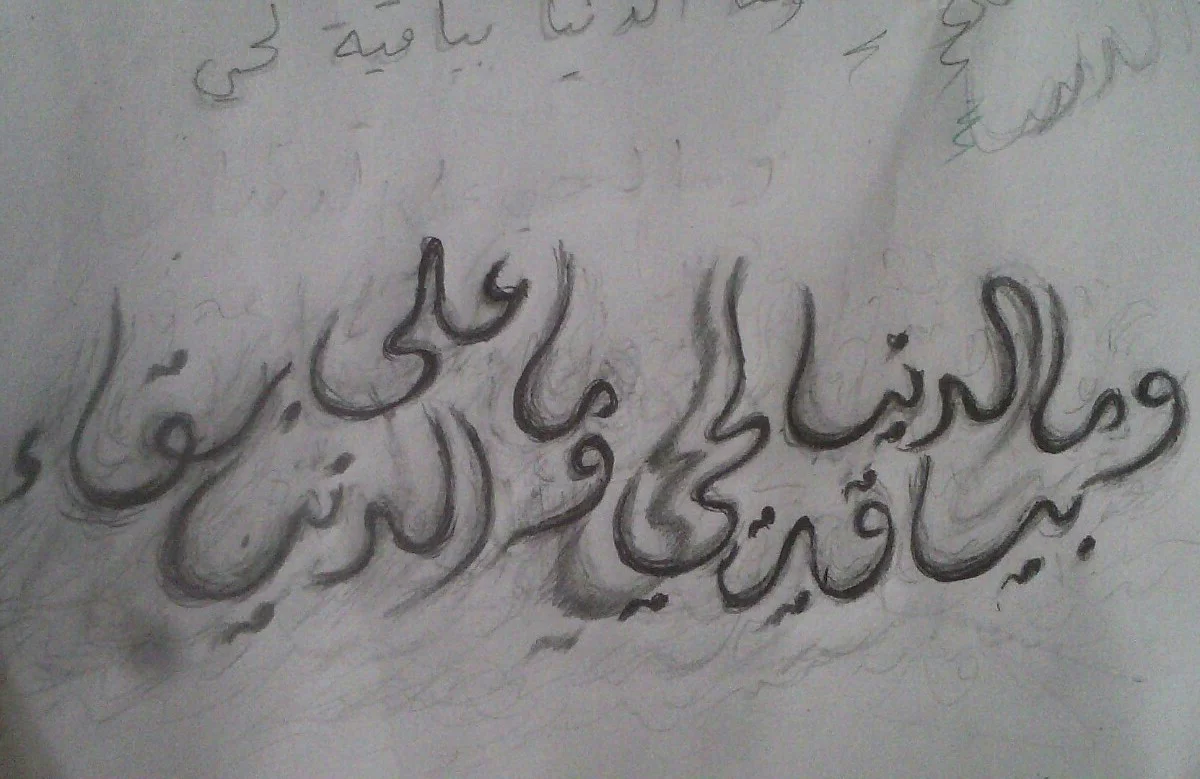 الدنيا بياقية لحي
ومالدنيا بياقية لحي وما على الدنيا بقاء